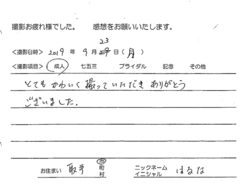 撮影お疲れ様でした。 感想をお願いいたします。
23
<撮影日時> 2019 年 9 月 日 (月)
<撮影項目> 成人 七五三 ブライダル 記念 その他
とてもかわいく撮っていただきありがとう
ございました。
お住まい 取手 市 町 村 ニックネーム イニシャル はるな